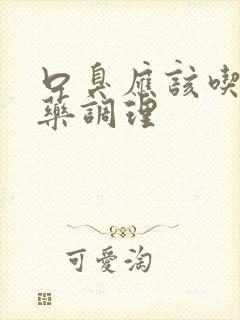 口臭應該喫
藥調理
可愛淘